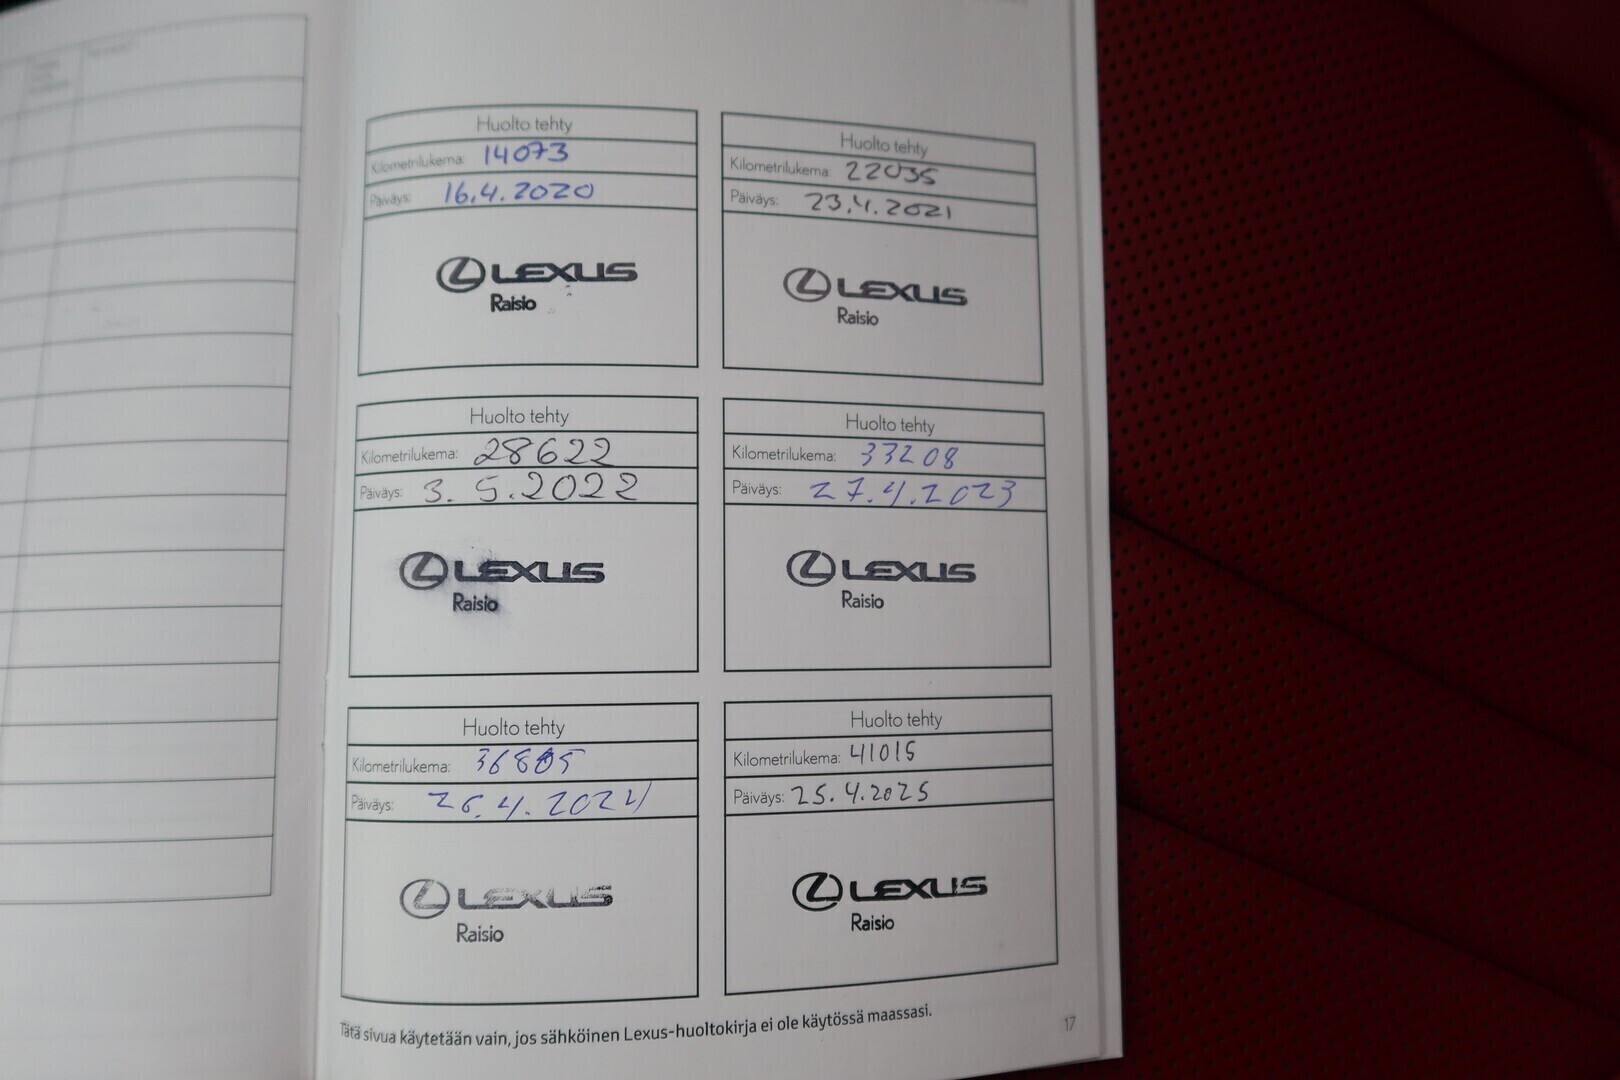 Huolto tehty
Kilometrilukema: 14073
Päiväys: 16.4.2020
LEXUS
Raisio
Huolto tehty
Kilometrilukema: 22035
Päiväys: 23.4.2021
LEXUS
Raisio
Huolto tehty
Kilometrilukema: 28622
Päiväys: 3.5.2022
LEXUS
Raisio
Huolto tehty
Kilometrilukema: 33208
Päiväys: 27.4.2023
LEXUS
Raisio
Huolto tehty
Kilometrilukema:
Päiväys: 26.4.2024
LEXUS
Raisio
Huolto tehty
Kilometrilukema: 41015
Päiväys: 25.4.2025
LEXUS
Raisio
Tätä sivua käytetään vain, jos sähköinen Lexus-huoltokirja ei ole käytössä maassasi.
17